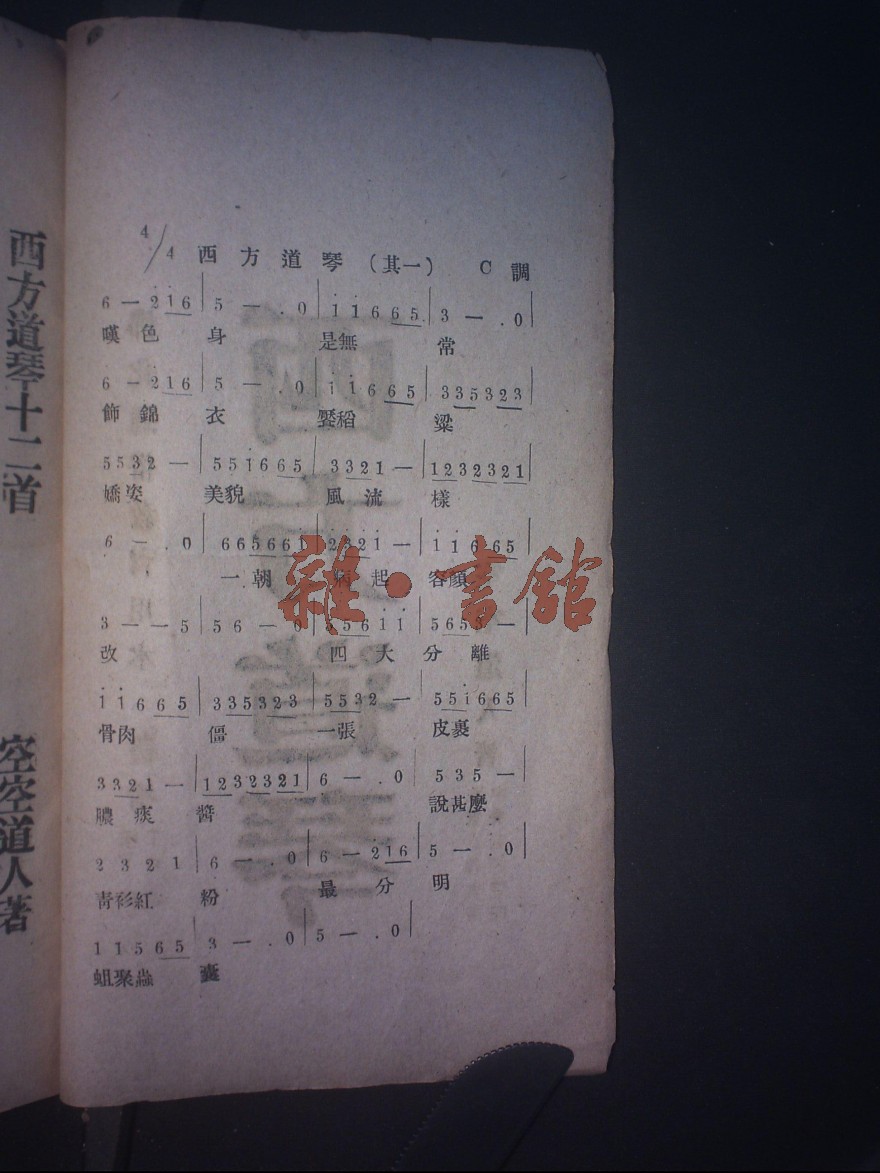 西方道琴十二首
空空道人著
4/4 西方道琴（其一） C調
6 — 2 1 6 | 5 — . 0 | 1 1 6 6 5 | 3 — . 0 |
嘆色身 是無常
6 — 2 1 6 | 5 — . 0 | 1 1 6 6 5 | 3 3 5 3 2 3 |
飾錦衣 饜稻粱
5 5 3 2 — | 5 5 1 6 6 5 | 3 3 2 1 — | 1 2 3 2 3 2 1 |
嬌姿美貌風流樣
6 — . 0 | 6 6 5 6 6 1 | 2 3 2 1 — | 1 1 6 6 5 |
一朝病起容顏
3 — — 5 | 5 6 — 0 | 5 5 6 1 1 | 5 6 5 3 — |
改 四大分離
1 1 6 6 5 | 3 3 5 3 2 3 | 5 5 3 2 — | 5 5 1 6 6 5 |
骨肉僵 一張皮裹
3 3 2 1 — | 1 2 3 2 3 2 1 | 6 — . 0 | 5 3 5 — |
膿痰醬 說甚麼
2 3 2 1 | 6 — . 0 | 6 — 2 1 6 | 5 — . 0 |
青衫紅粉 最分明
1 1 5 6 5 | 3 — . 0 | 5 — . 0 |
蛆聚蟲囊
雜·書館